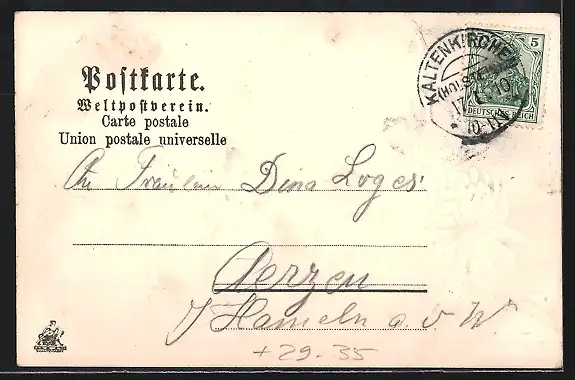 Postkarte.
Weltpostverein.
Carte postale
Union postale universelle
KALTENKIRCHEN
(HOLSTEIN)
5
DEUTSCHES REICH
An Fräulein Dina Loges
Aerzen
b/ Hameln a. d. W
+29.35